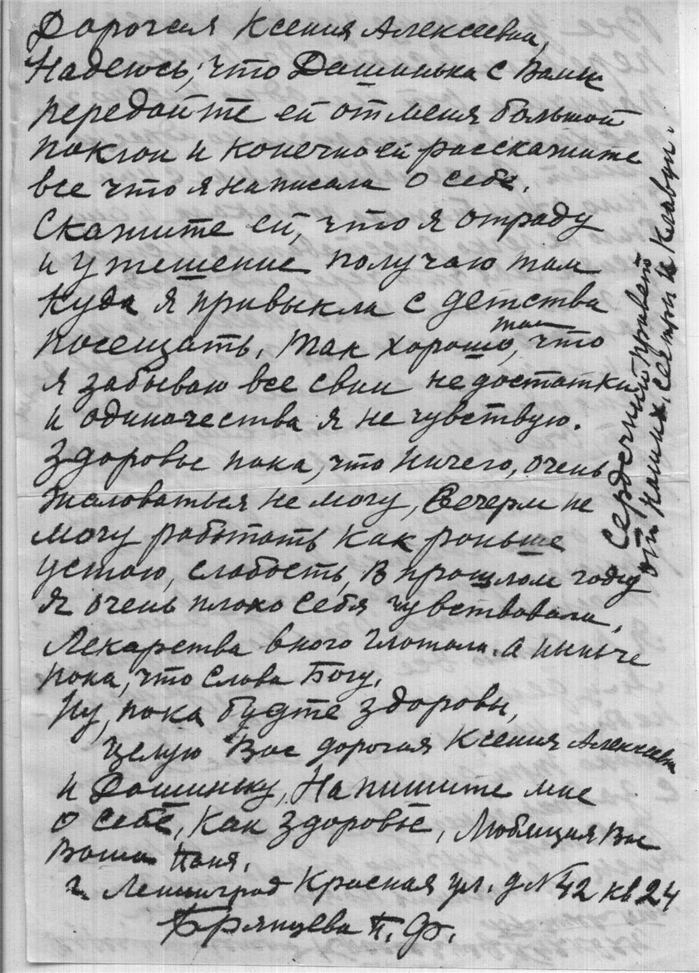 Дорогая Ксения Алексеевна,
Надеюсь, что Дашинька с Вами
передайте ей от меня большой
поклон и конечно ей расскажите
все что я написала о себе.
Скажите ей, что я отраду
и утешение получаю там
куда я привыкла с детства
посещать, так хорошо там, что
я забываю все свои недостатки
и одиночества я не чувствую.
Здоровье пока, что ничего, очень
жаловаться не могу, Вечерм не
могу работать как раньше
устаю, слабость, В прошлом году
я очень плохо себя чувствовала,
Лекарства много глотала. а нынче
пока, что Слава Богу.
Ну, пока будте здоровы,
целую Вас дорогая Ксения Алексеевна
и Дашиньку, Напишите мне
о себе, Как здоровье, Любящая Вас
Ваша Паня.
г. Ленинград Красная ул. д № 42 кв 24
Брянцева П. Ф.
Сердечный привет
от наших, сестры и Клавди.